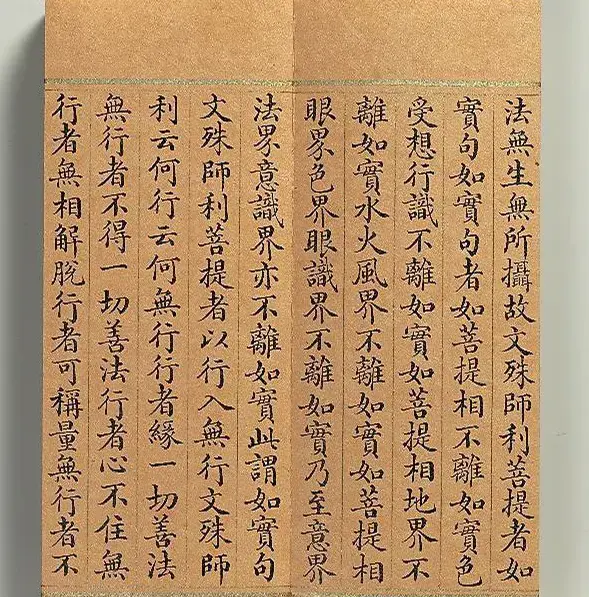 法無生無所攝故文殊師利菩提者如
實句如實句者如菩提相不離如實色
受想行識不離如實如菩提相地界不
離如實水火風界不離如實如菩提相
眼界色界眼識界不離如實乃至意界
法界意識界亦不離如實此謂如實句
文殊師利菩提者以行入無行文殊師
利云何行云何無行行者緣一切善法
無行者不得一切善法行者心不住無
行者無相解脱行者可稱量無行者不